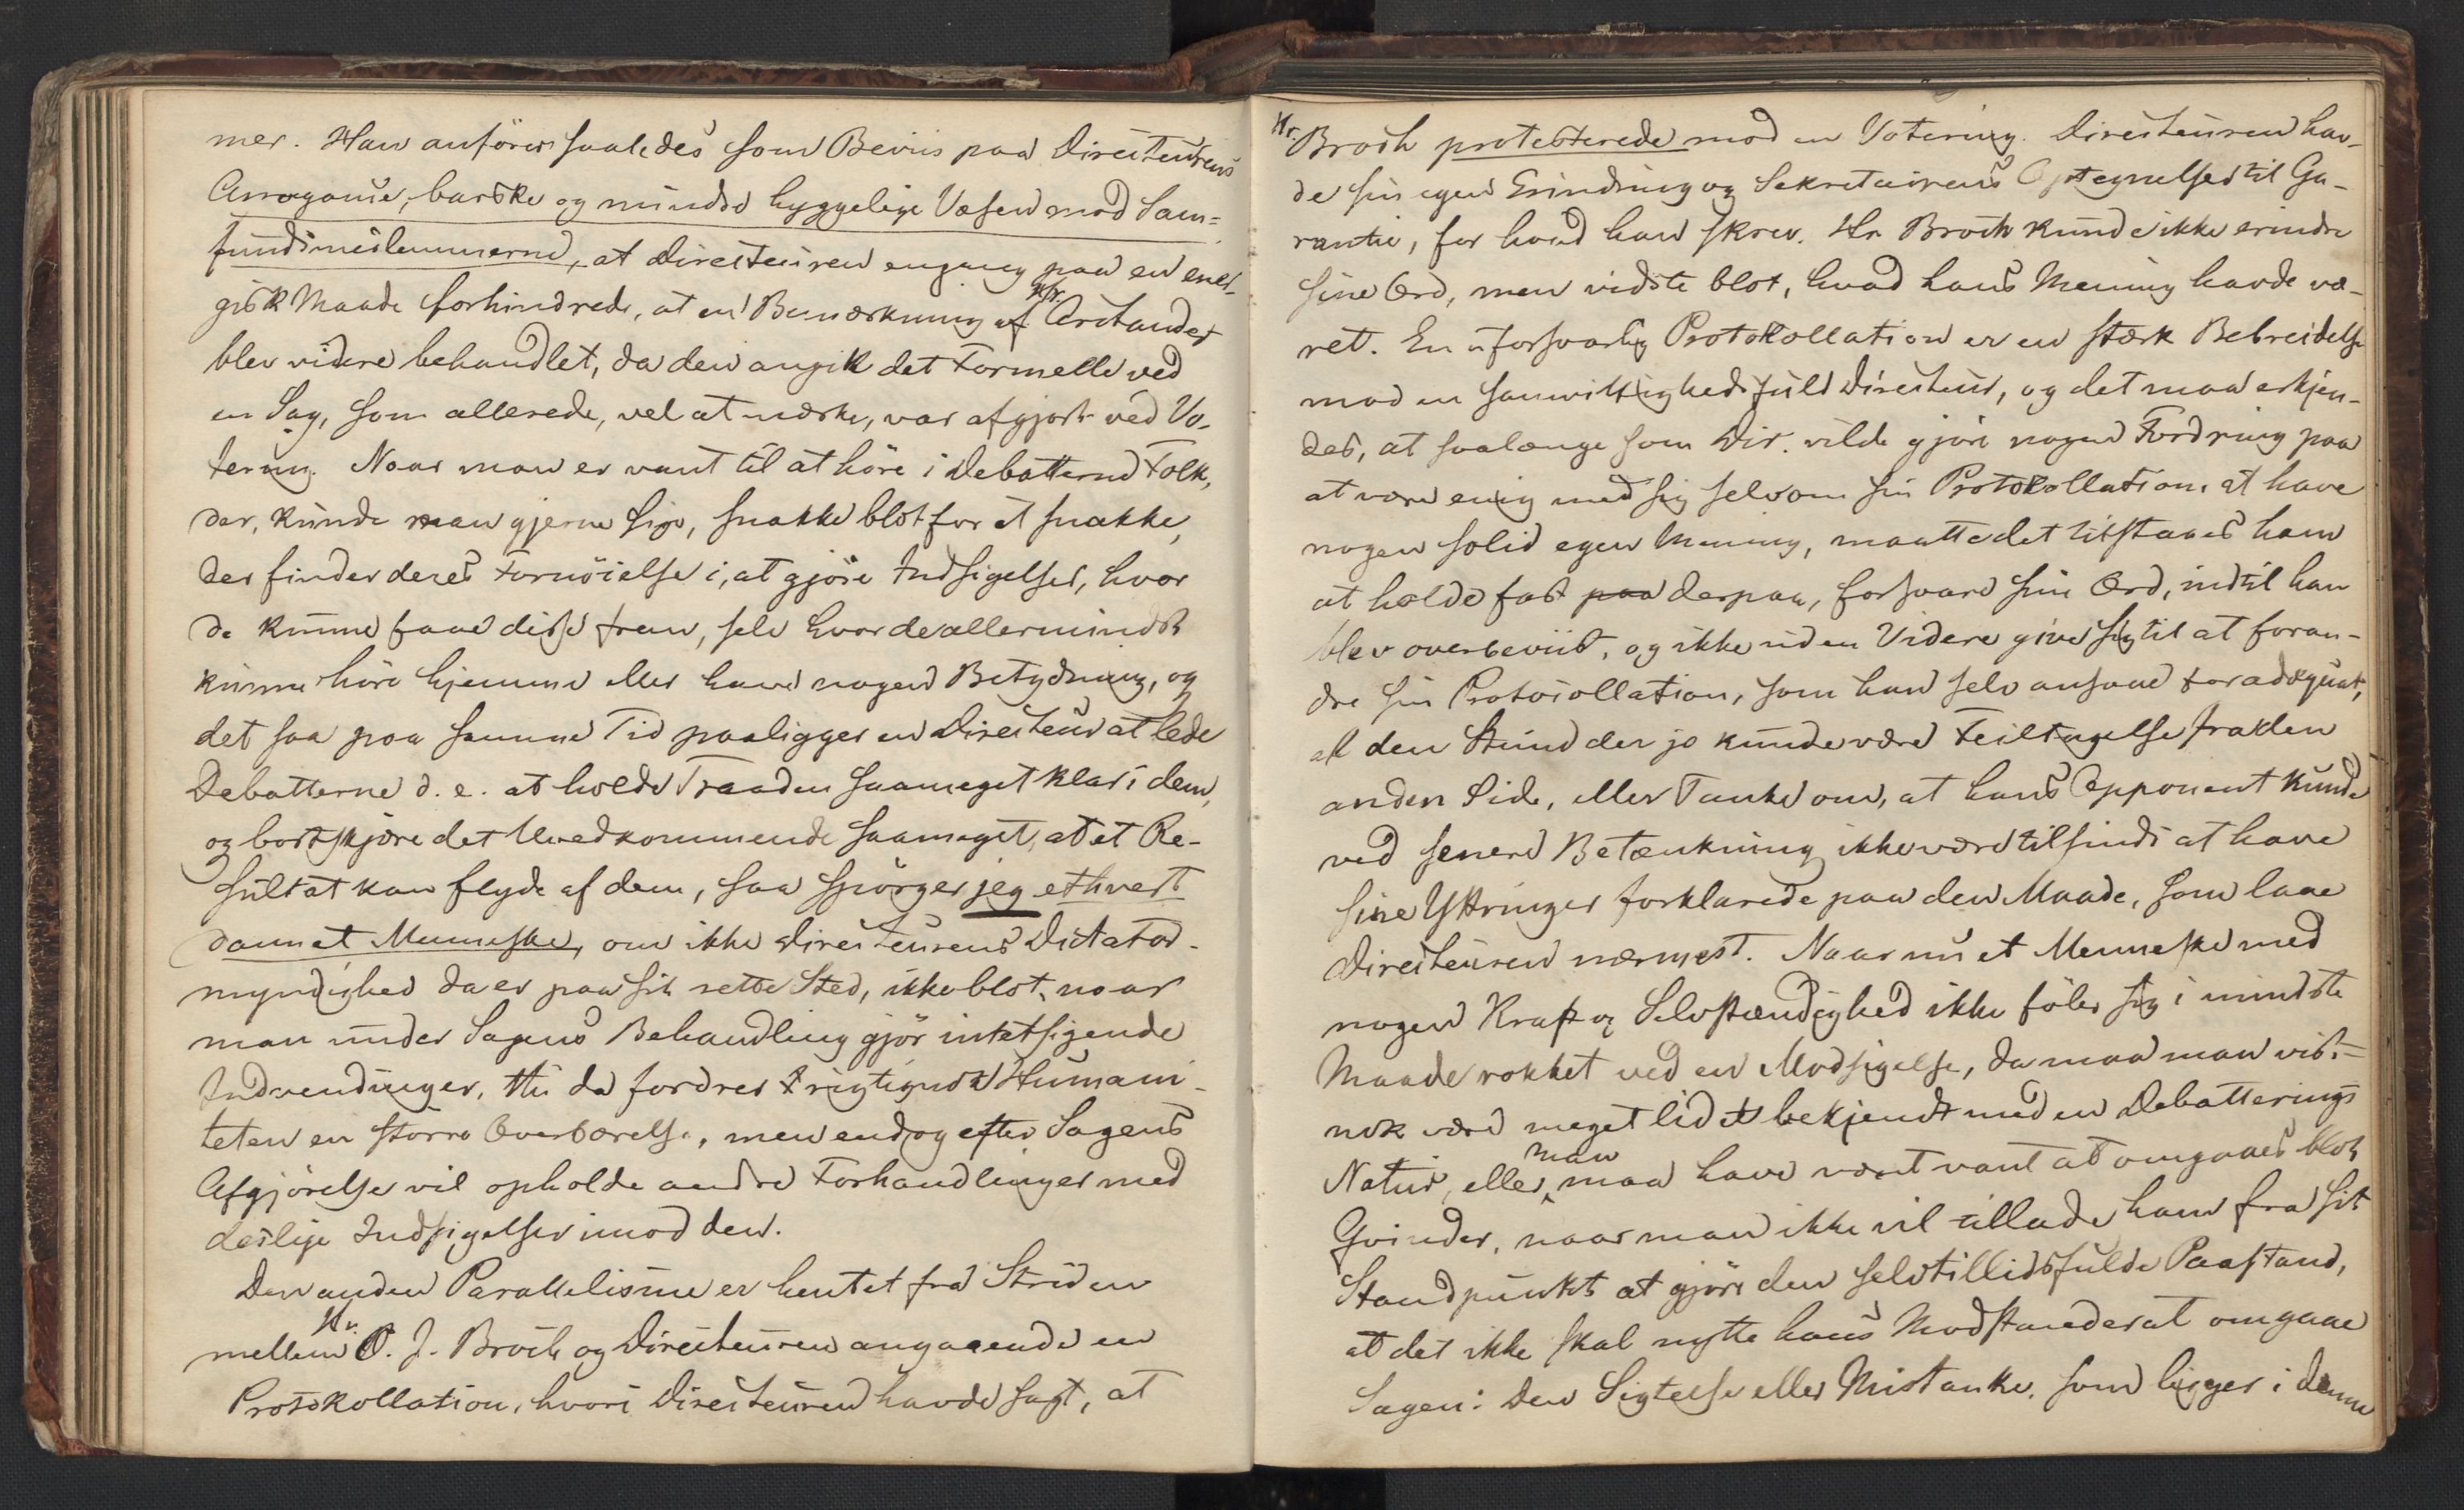 mer. Han anförer saaledes som Beviis paa Directeurens
Arrogance, barske og mindre hyggelige Væsen mod Sam=
fundsmedlemmerne, at Directeuren engang paa en ener-
gisk Maade forhindrede, at en Bemærkning af Hr. Arctander
blev videre behandlet, da den angik det Formelle ved
en Sag, som allerede, vel at mærke, var afgjort ved Vo-
tering. Naar man er vant til at höre i Debatterne Folk,
der, kunde man gjerne sige, snakke blot for at snakke,
der finder deres Fornöielse i, at gjöre Indsigelser, hvor
de kunne faae disse frem, selv hvor de allermindst
kunne höre hjemme eller have nogen Betydning, og
det saa paa samme Tid paaligger en Directeur at lede
Debatterne d. e. at holde Traaden saameget klar i dem,
og bortskjære det Uvedkommende saameget, at et Re-
sultat kan flyde af dem, saa spörger jeg ethvert
dannet Menneske, om ikke Directeurens Dictator-
myndighed da er paa sit rette Sted, ikke blot, naar
man under Sagens Behandling gjör intetsigende
Indvendinger, thi da fordrer rigtignok Humani-
teten en större Overbærelse, men endog efter Sagens
Afgjörelse vil opholde andre Forhandlinger med
deslige Indsigelser imod den.
Den anden Parallelisme er hentet fra Striden
mellem Hr. O. J. Broch og Directeuren angaaende en
Protokollation, hvori Directeuren havde sagt, at
Hr. Broch protesterede mod en Votering. Directeuren hav-
de sin egen Erindring og Sekretairens Optegnelser til Ga-
rantie, for hvad han skrev. Hr Broch kunde ikke erindre
sine Ord, men vidste blot, hvad hans Mening havde væ-
ret. En uforsvarlig Protokollation er en stærk Bebreidelse
mod en samvittighedsfuld Directeur, og det maa erkjen-
des, at saalænge som Dir. vilde gjöre nogen Fordring paa
at være enig med sig selv om sin Protokollation, at have
nogen solid egen Mening, maatte det tilstaaes ham
at holde fast paa derpaa, forsvare sin Ord, indtil han
blev overbeviist, og ikke uden Videre give sig til at foran-
dre sin Protocollation, som han selv ansaae for adæquat,
al den Stund der jo kunde være Feiltagelse fra den
anden Side, eller Tanke om, at hans Opponent kunde
ved senere Betænkning ikke være tilsinds at have
sine Yttringer forklarede paa den Maade, som laae
Directeuren nærmest. Naar nu et Menneske med
nogen Kraft og Selvstændighed ikke föler sig i mindste
Maade rokket ved en Modsigelse, da maa man vist-
nok være meget lidet bekjendt med en Debatterings
Natur, eller man maa have vært vant at omgaaes blot
Qvinder, naar man ikke vil tillade ham fra sit
Standpunkt at gjöre den selvtillidsfulde Paastand,
at det ikke skal nytte hans Modstander at omgaae
Sagen: Den Sigtelse eller Mistanke, som ligger i denne